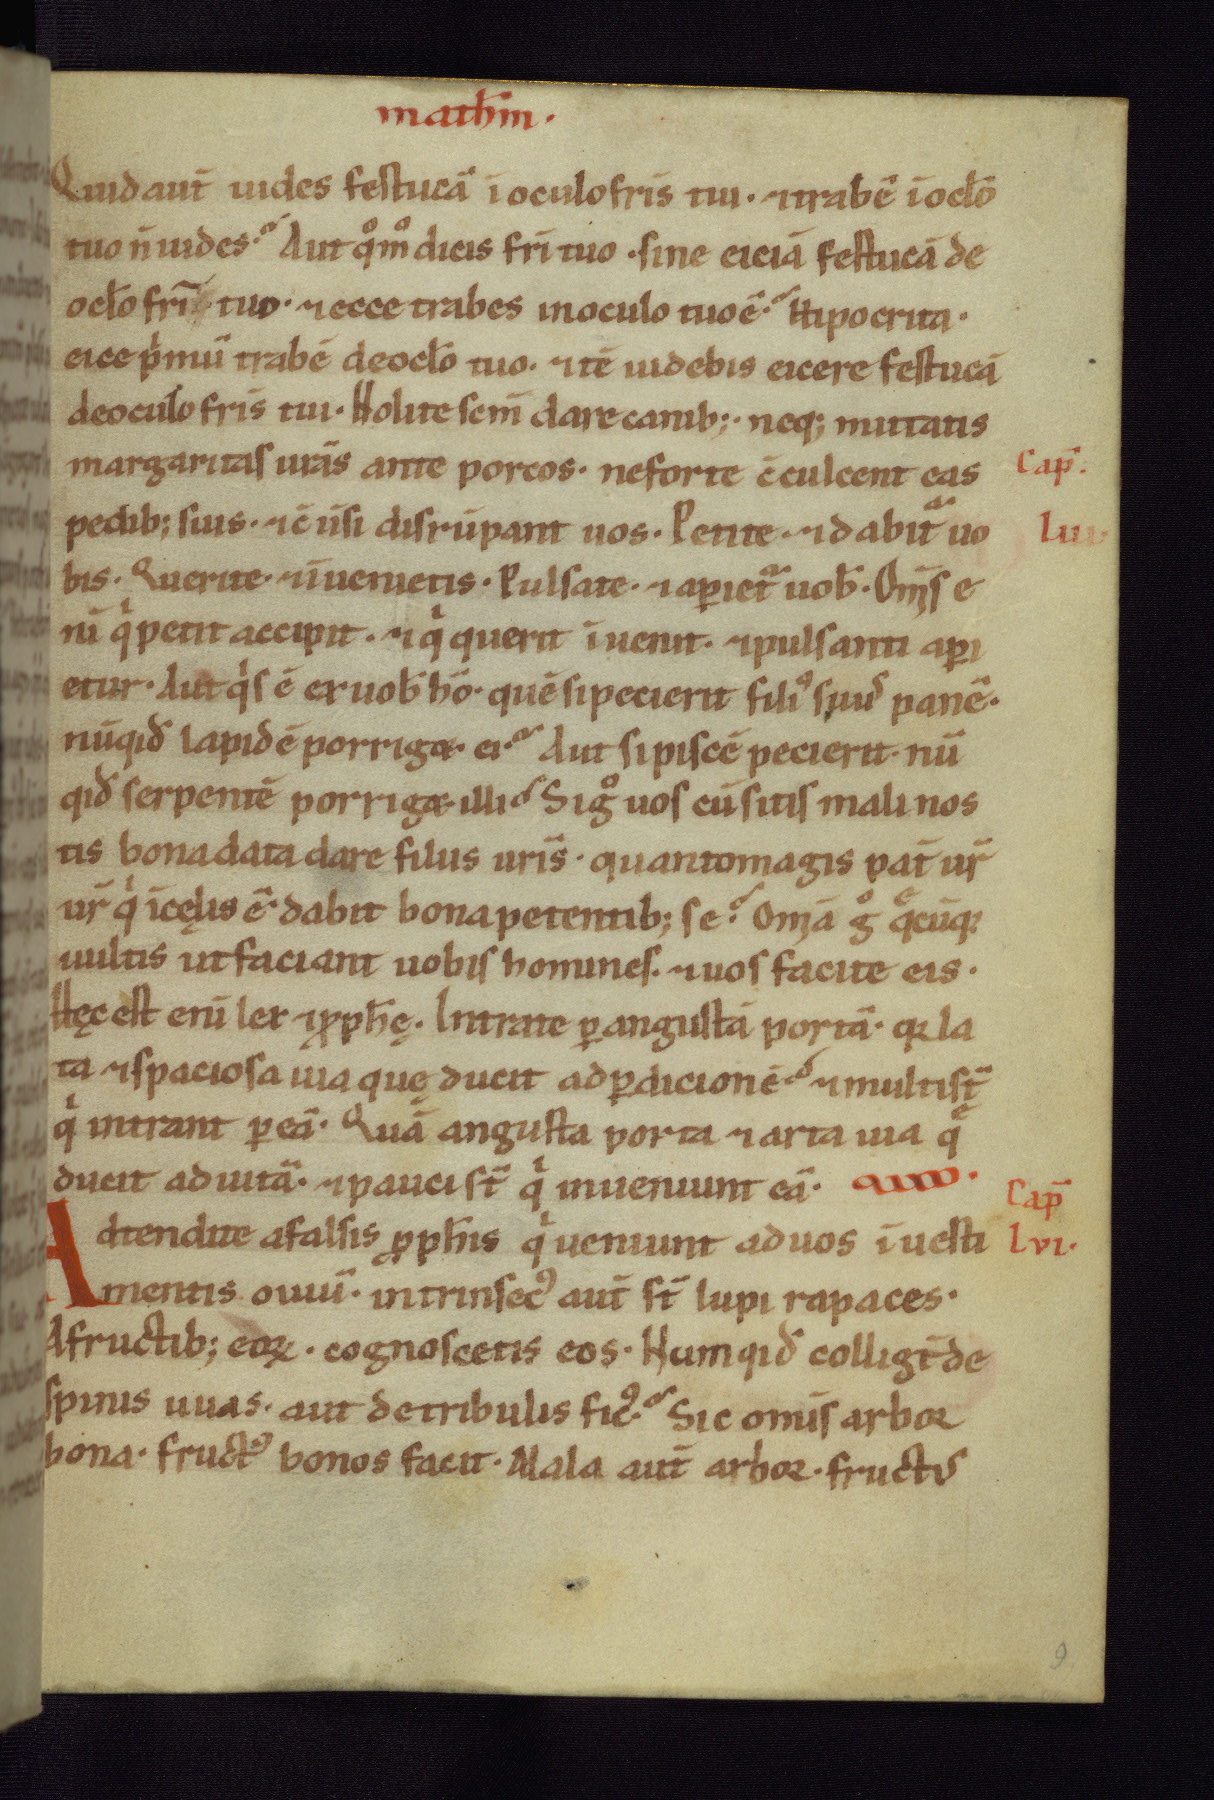 math̄m.
Quid aut̄ uides festucā ī oculo fr̄is tui. ⁊ trabē ī oclō
tuo n̄ uides. Aut qͦmͦ dicis fr̄i tuo. sine eiciā festucā de
oclō fr̄i tuo. ⁊ ecce trabes in oculo tuo ē. Hipocrita.
eice pͥmū trabē de oclō tuo. ⁊ tē uidebis eicere festucā
de oculo fr̄is tui. Nolite scm̄ dare canib;. neq; mittatis
margaritas urās ante porcos. ne forte c̄culcent eas
Cap̄.
pedib; suis. ⁊ c̄uersi disrūpant uos. Petite. ⁊ dabit᷑ uo
Lu.
bis. Querite. ⁊ īuenietis. Pulsate. ⁊ aꝑiet᷑ uob̄. Om̄s e
nī qͥ petit accipit. ⁊ qͥ querit īuenit. ⁊ pulsanti aꝑi
etur. Aut qͥs ē ex uob̄ hō. quē si pecierit filiꝰ suus panē.
nūqid̄ lapidē porriget ei. Aut si piscē pecierit. nū
qid̄ serpentē porriget illi. Si gͦ uos cū sitis mali nos
tis bona data dare filiis ur̄is. quanto magis pat̄ ur̄
ur̄ qͥ ī cęlis ē. dabit bona petentib; se. Om̄ā gͦ qͣecūq;
uultis ut faciant uobis homines. ⁊ uos facite eis.
Hęc est enī lex ⁊ ꝓph̄ę. Intrate ꝑ angustā portā. qꝛ la
ta ⁊ spaciosa uia quę ducit ad ꝑdicionē. ⁊ multi st̄
qͥ intrant ꝑ eā. Quā angusta porta ⁊ arta uia qͤ
ducit ad uitā. ⁊ pauci st̄ qͥ inueniunt eā.
Cap̄
Adtendite a falsis ꝓph̄is qͥ ueniunt ad uos ī uesti
Lvi.
mentis ouiū. intrinsecꝰ aut̄ st̄ lupi rapaces.
A fructib; eoꝝ. cognoscetis eos. Numqid̄ colligt̄ de
spinis uuas. aut de tribulis ficꝰ. Sic omīs arbor
bona. fructꝰ bonos facit. Mala aut̄ arbor. fructus
9